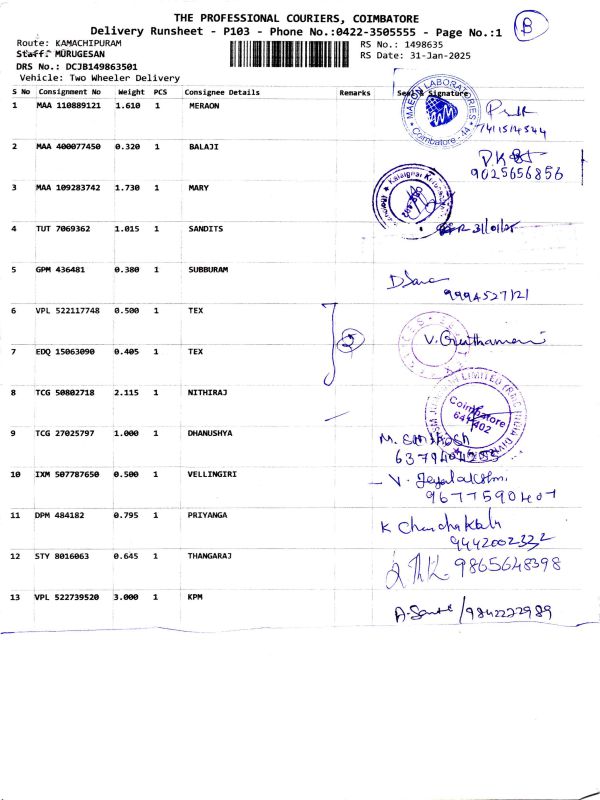 THE PROFESSIONAL COURIERS, COIMBATORE
Delivery Runsheet - P103 - Phone No.:0422-3505555 - Page No.:1
B
Route: KAMACHIPURAM
RS No.: 1498635
Staff: MURUGESAN
RS Date: 31-Jan-2025
DRS No.: DCJB149863501
Vehicle: Two Wheeler Delivery
S No Consignment No Weight PCS Consignee Details Remarks Seal & Signature
1 MAA 110889121 1.610 1 MERAON
MAEON LABORATORIES
Coimbatore - 44
7411514544
2 MAA 400077450 0.320 1 BALAJI
9025656856
3 MAA 109283742 1.730 1 MARY
4 TUT 7069362 1.015 1 SANDITS
31/01/25
5 GPM 436481 0.380 1 SUBBURAM
9994527121
6 VPL 522117748 0.500 1 TEX
2
7 EDQ 15063090 0.405 1 TEX
8 TCG 50802718 2.115 1 NITHIRAJ
Coimbatore
641402
9 TCG 27025797 1.000 1 DHANUSHYA
M. Santhosh
10 IXM 507787650 0.500 1 VELLINGIRI
9677590407
11 DPM 484182 0.795 1 PRIYANGA
9442002332
12 STY 8016063 0.645 1 THANGARAJ
9865648398
13 VPL 522739520 3.000 1 KPM
9842222989